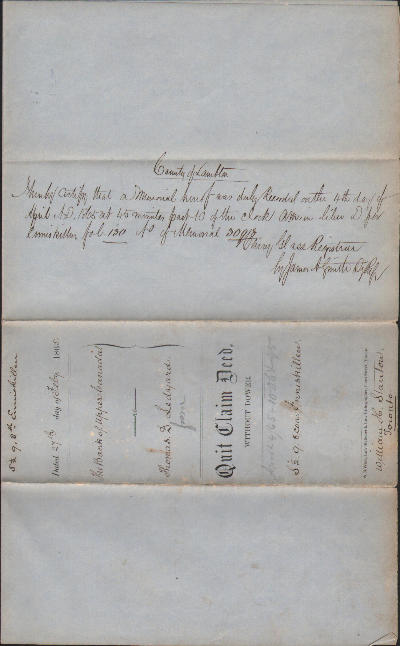 County of Lambton
I hereby certify that a Memorial hereof was duly Recorded on the 4th day of
April A.D. 1865 at 45 minutes past 10 of the clock A.M. in liber D for
Enniskillen fol 130 No of Memorial
Registrar
by James
S½ 9. 8th Enniskillen
Dated 27th day of Feby 1865.
The Bank of Upper Canada
Thomas D. Ledyard.
Quit Claim Deed.
WITHOUT DOWER
S½ 9 8 Con: Enniskillen.
William H. Stanton,
Toronto